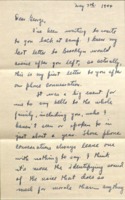 May 7th 1944
Dear George,
I've been waiting to write to
you back at Camp. I know my
last letter to Brooklyn would
arrive after you left, so actually
this is my first letter to you after
our phone conversation.
It was a big event for
me to say hello to the whole
family, including you, who I
hadn't spoken to in
just about a year. Phone
conversations always leave one
with nothing to say. I think
it's more the identifying sound
of the voices that does so
much far more than anything